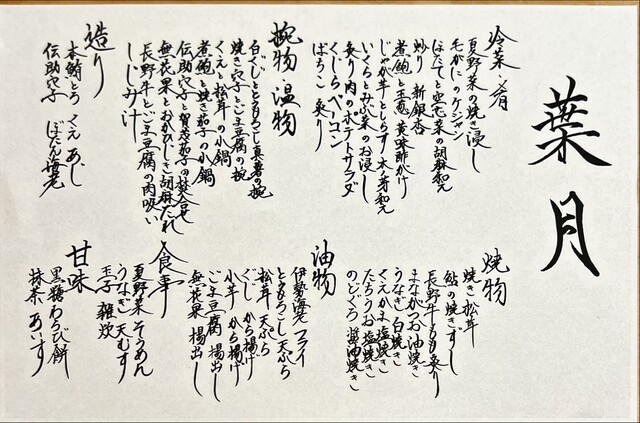 葉月
冷菜・肴
夏野菜の焼き浸し
毛がにのケジャン
ほたてと空芯菜の胡麻和え
炒り新銀杏
煮鮑と玉葱 黄味酢がけ
じゃが芋としらす 木ノ芽和え
いくらとみぶ菜のお浸し
炙り肉のポテトサラダ
くじらベーコン
ばちこ 炙り
椀物・温物
白ぐじととうもろこし真薯の椀
焼き穴子とごま豆腐の椀
くえと松茸の小鍋
煮鮑と焼き茄子の小鍋
伝助穴子と賀茂茄子の焚合せ
無花果とおかひじき 胡麻だれ
長野牛とごま豆腐の肉吸い
しじみ汁
造り
本鮪とろ くえ あじ
伝助穴子 ぼたん海老
焼物
焼き松茸
鮎の焼きずし
長野牛もも炙り
まながつお油焼き
うなぎ白焼き
くえかま塩焼き
たちうお塩焼き
のどぐろ 醤油焼き
油物
伊勢海老フライ
とうもろこし天ぷら
松茸 天ぷら
ぐじ から揚げ
小芋 から揚げ
ごま豆腐 揚出し
無花果 揚出し
食事
夏野菜 そうめん
うなぎ 天むす
玉子 雑炊
甘味
黒糖わらび餅
抹茶あいす